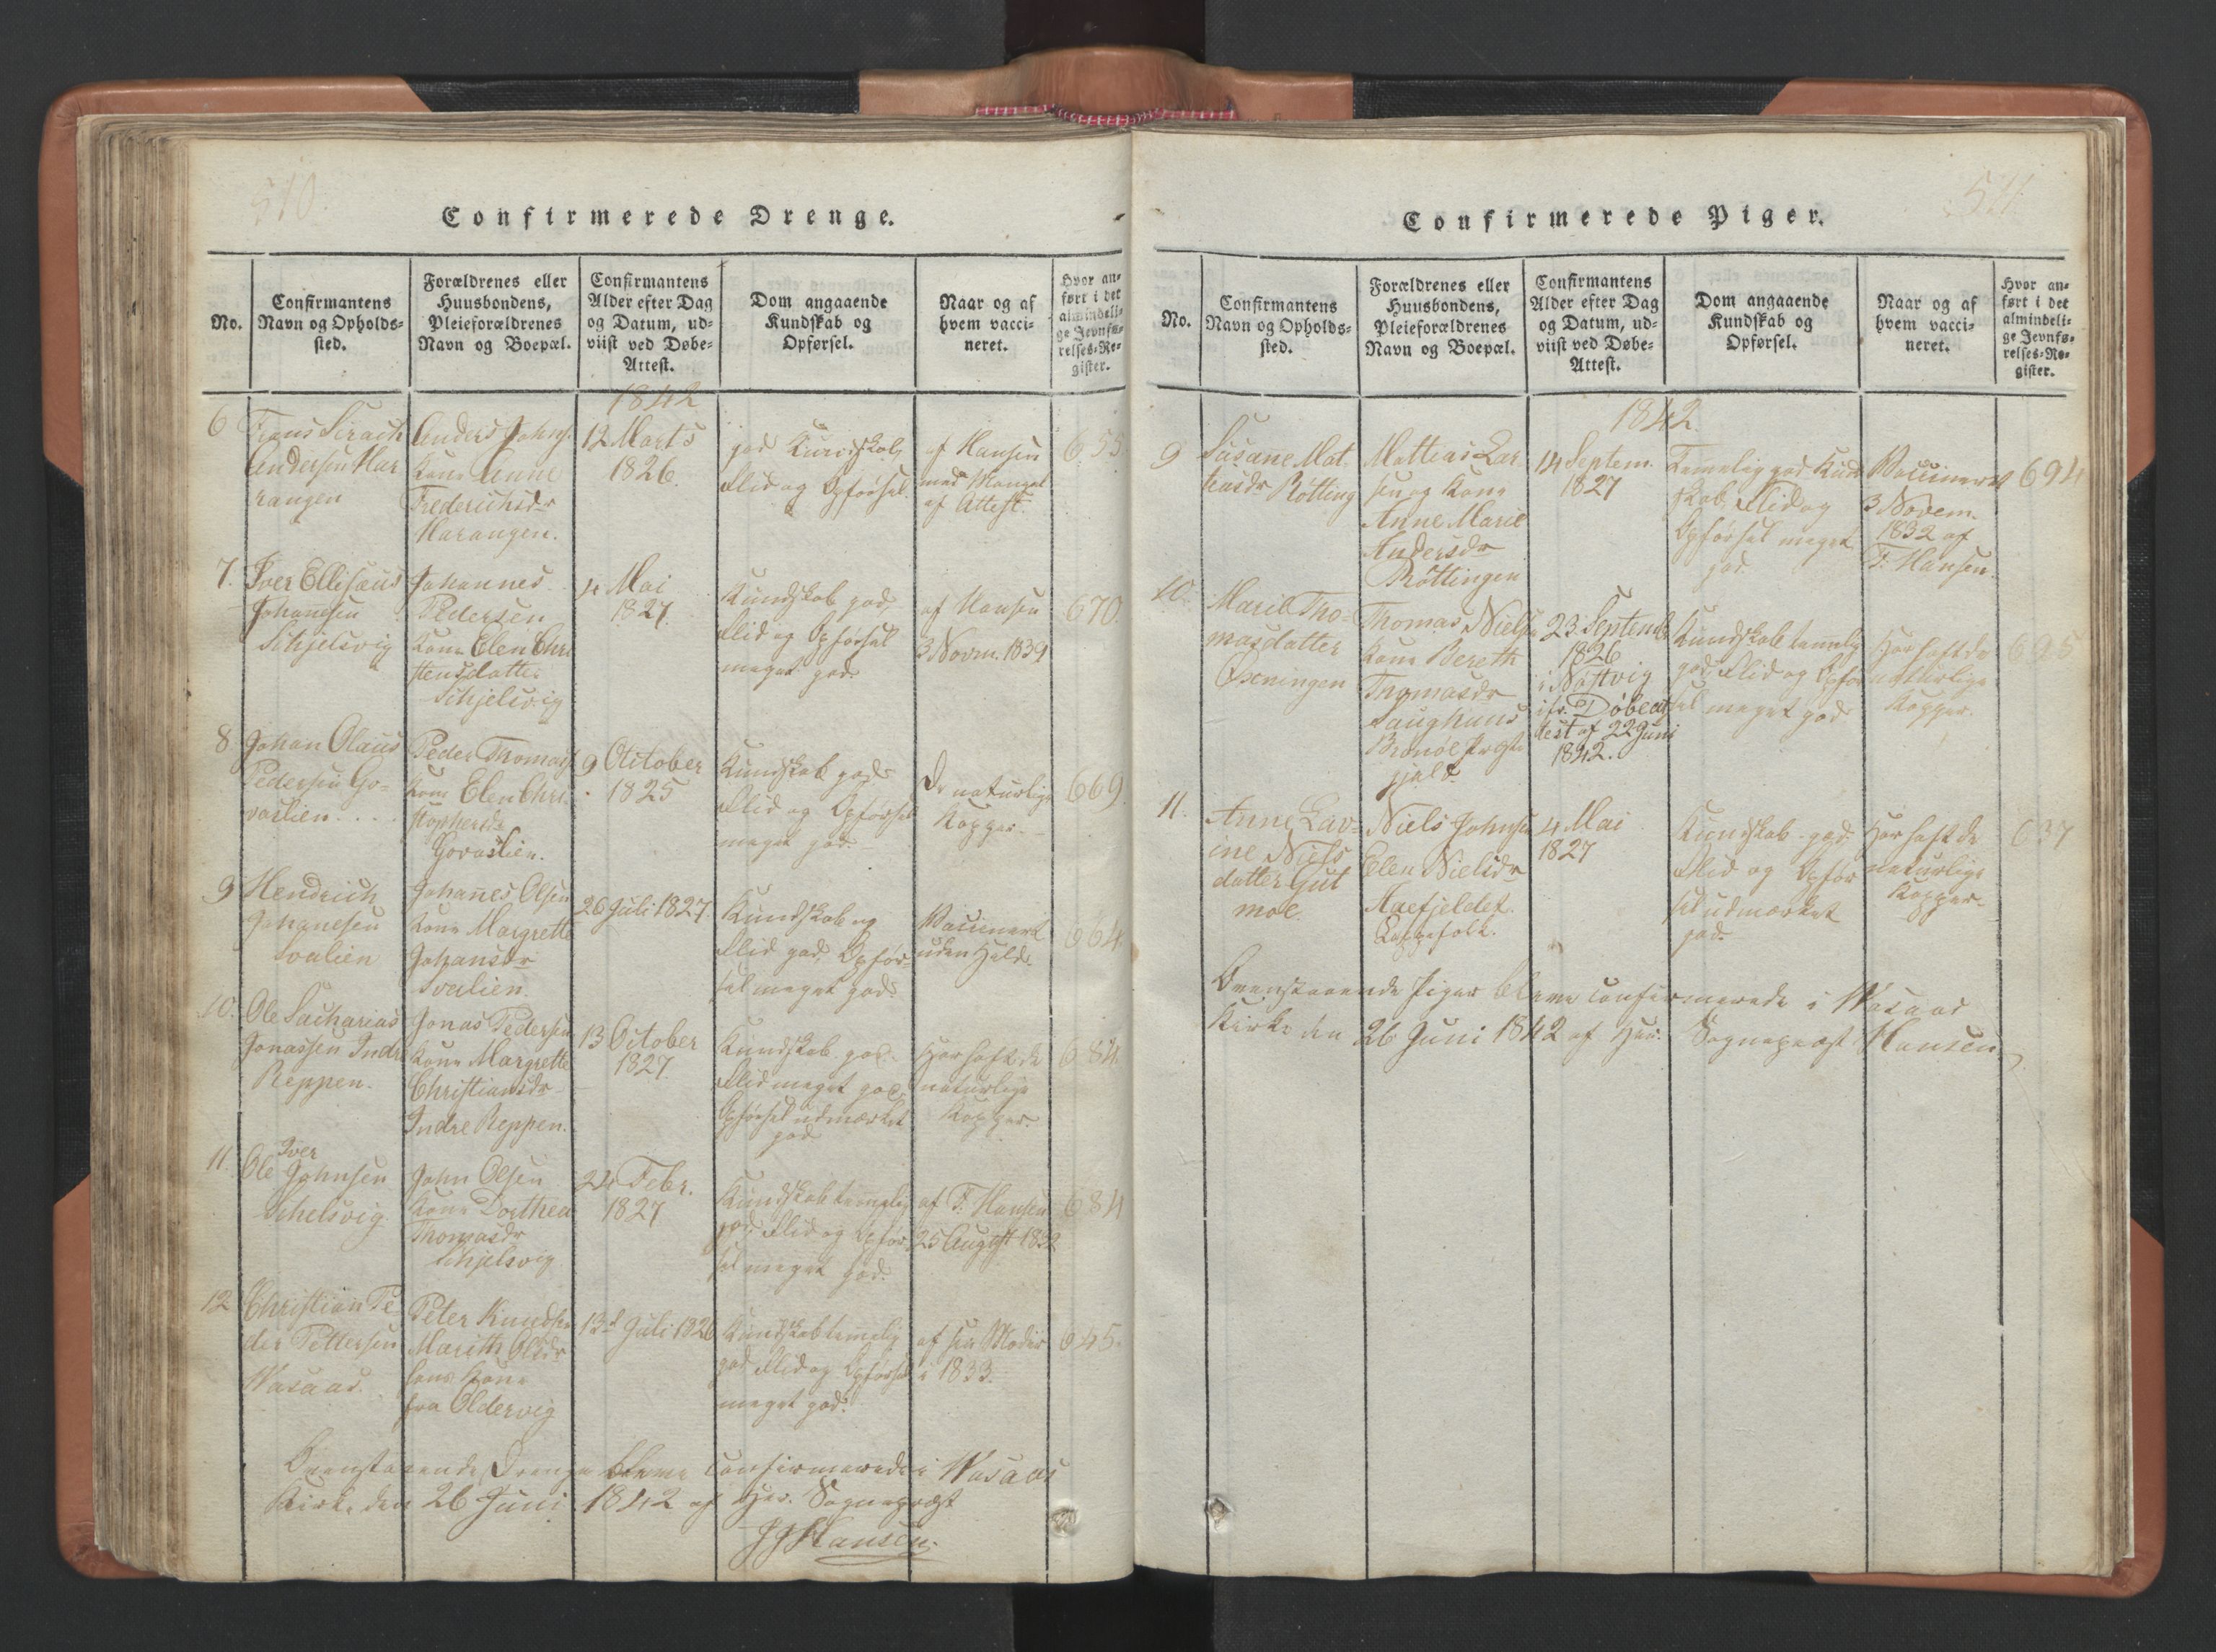 510.
Confirmerede Drenge.
No.
Confirmantens
Navn og Opholds-
sted.
Forældrenes eller
Huusbondens,
Pleieforældrenes
Navn og Boepæl.
Confirmantens
Alder efter Dag
og Datum, ud-
viist ved Døbe-
Attest.
Dom angaaende
Kundskab og
Opførsel.
Naar og af
hvem vacci-
neret.
Hvor an-
ført i det
almindeli-
ge Jevnfø-
relses-Re-
gister.
1842
6
Andersen Har
rangen
Anders Johns.
Kone Anne
Frederichsdr
Harangen.
12 Marts
1826.
god Kundskab,
Flid og Opførsel.
af Hansen
med Mangel
af Attest.
655.
7.
Iver Ellisæus
Johansen
Schjelsvig
Johannes
Pedersen
Kone Elen Chri
stensdatter
Schjelsvig
4 Mai
1827.
Kundskab god,
Flid og Opførsel
meget god.
af Hansen
3 Novm. 1839
670.
8
Johan Olaus
Pedersen Go-
vaslien...
Peder Thomas
Kone Elen Chri-
stophersdr
Govaslien.
9 October
1825
Kundskab god
Flid og Opførsel
meget god
De naturlige
Kopper.
669.
9
Hendrich
Johanesen
Svalien
Johanes Olsen
Kone Margrette
Johansdr
Svalien.
26 Juli 1827.
Kundskab og
Flid god, Opfør-
sel meget god.
Vaccineret
uden Held.
664.
10.
Ole Sacharias
Jonassen Indre
Reppen.
Jonas Pedersen
Kone Margrette
Christiansdr
Indre Reppen.
13 October
1827.
Kundskab god.
Flid meget god,
Opførsel udmærket
god
Har haft de
naturlige
Kopper.
684.
11.
Iver
Ole Johnsen
Schelsvig.
John Olsen
Kone Dorthea
Thomasdr
Schjelsvig
24 Febr.
1827
Kundskab temelig
god, Flid og Opfør
sel meget god.
af F. Hansen
25 August 1832
684
12
Christian Pe
der Pettersen
Vasaas.
Peter Knudsen
Marith Olsdr
hans Kone
fra Oldervig
13d Juli 1826
Kundskab temelig
god Flid og Opførsel
meget god.
af sin Moder
i 1833.
645.
Ovenstaaende Drenge bleve Confirmerede i Vasaas
Kirke den 26 Juni 1842 af Hr. Sognepræst
JJ Hansen.
511.
Confirmerede Piger.
No.
Confirmantens
Navn og Opholds-
sted.
Forældrenes eller
Huusbondens,
Pleieforældrenes
Navn og Boepæl.
Confirmantens
Alder efter Dag
og Datum, ud-
viist ved Døbe-
Attest.
Dom angaaende
Kundskab og
Opførsel.
Naar og af
hvem vacci-
neret.
Hvor an-
ført i det
almindeli-
ge Jevnfø-
relses-Re-
gister.
1842.
9
Susane Mat
tiasdr Røtting
Mattias Lar
sen og Kone
Anne Marie
Andersdr
Røttingen
14 Septem.
1827
Temelig god Kund
skab, Flid og
Opførsel meget
god.
Vaccineret
3 Novem.
1832 af
F. Hansen.
694
10.
Marie Tho-
masdatter
Øxningen
Thomas Nielsen
Kone Bereth
Thomasdr
Brønøe Præste
gjeld
23 Septembr
1826
i Nøstvig
Døbeat
test af 22 Juni
1842.
Kundskab temelig
god, Flid og Opfør
sel meget god
Har haft de
naturlige
Kopper.
695
11.
Anne Lav-
ine Niels
datter Gut
moe.
Niels Johnsen
Elen Nielsdr
Aaefjeldet.
Lappefolk.
4 Mai
1827
Kundskab god
Flid og Opfør
sel udmærket
god.
Har haft de
naturlige
Kopper.
637
Ovenstaaende Piger bleve confirmerede i Vasaas
Kirke den 26 Juni 1842 af Hr. Sognepræst Hansen